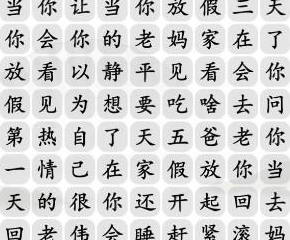 当你让当你放假三天
你会你的老妈家在了
放看以静平见看会你
假见为想要吃啥去问
第热自了天五爸老你
一情己在家假放你当
天的很你还开起回去
回老伟会睡赶紧滚妈